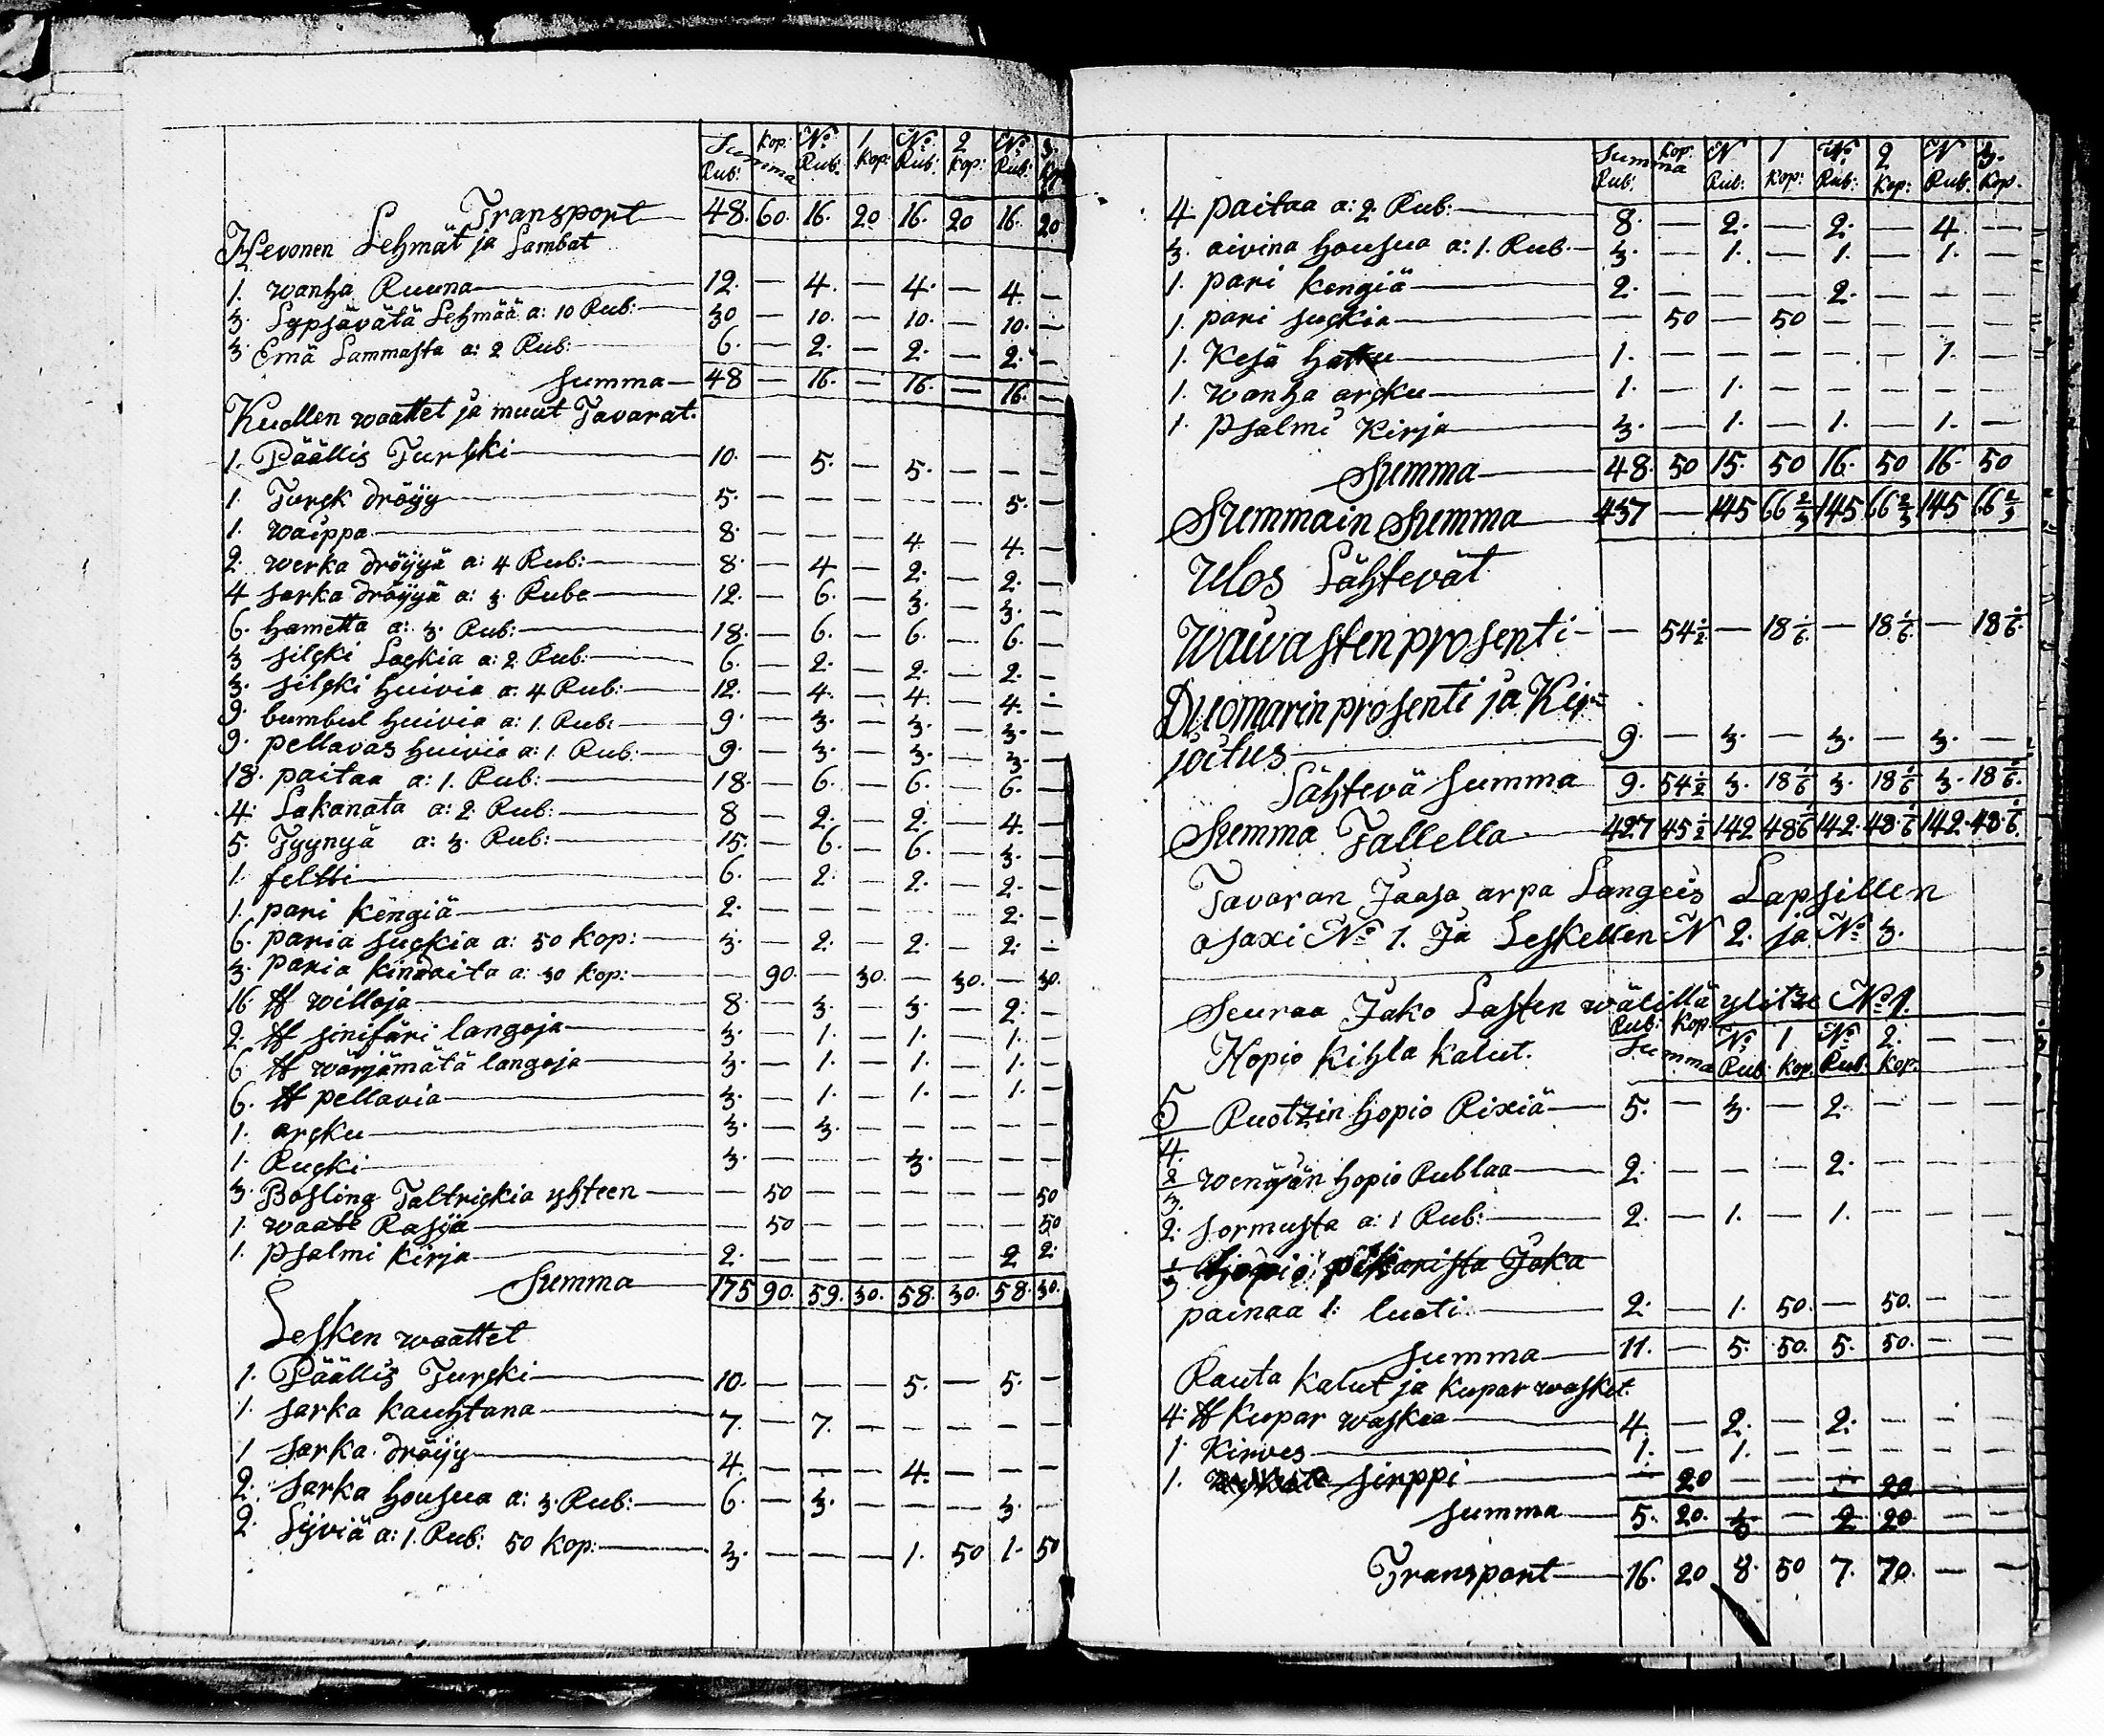 Summa Kop: No 1 No 2 No 3.
Rub: Rub. Kop: Rub: Kop: Rub: Kop
Transport 48. 60. 16. 20 16. 20 16. 20
Hevonen Lehmät ja Lambat
1. wanha Ruuna 12. — 4. — 4. — 4. —
3. Lypsävätä Lehmää a: 10 Rub: 30 — 10. — 10. — 10. —
3 Emä Lammasta a: 2 Rub: 6. — 2. — 2. — 2. —
Summa 48 — 16. — 16. — 16. —
Kuollen waattet ja muut Tavarat.
1. Päällis Turcki 10. — 5. — 5. — — —
1. Turck dröyy 5. — — — — — 5. —
1. waippa 8. — — — 4 — 4. —
2. werka dröyyä a: 4 Rub: 8. — 4 — 2. — 2. —
4 sarka dröyyä a: 3. Ruba 12. — 6. — 3. — 3. —
6. hametta a: 3. Rub: 18. — 6. — 6. — 6. —
3 silcki Lackia a: 2. Rub: 6. — 2. — 2. — 2. —
3. silcki huivia a: 4 Rub: 12. — 4. — 4. — 4. —
9. bumbul huivia a: 1. Rub: 9. — 3. — 3. — 3. —
9. pellavas huivia a: 1. Rub: 9. — 3. — 3. — 3. —
18. paitaa a: 1. Rub: 18. — 6. — 6. — 6. —
4: Lakanata a: 2. Rub: 8 — 2. — 2. — 4. —
5. Tyynyä a: 3. Rub: 15. — 6. — 6. — 3. —
1. feltti 6. — 2. — 2. — 2. —
1. pari kengiä 2. — — — — — 2. —
6. paria suckia a: 50 kop: 3. — 2. — 2. — 2. —
3. paria kindaita a: 30 kop: — 90. — 30. — 30. — 30.
16. ℔ willoja 8. — 3. — 3. — 2. —
2. ℔ sinifäri langoja 3. — 1. — 1. — 1. —
6 ℔ wärjämätä langoja 3. — 1. — 1. — 1. —
6. ℔ pellavia 3. — 1. — 1. — 1. —
1. arcku 3. — 3. — — — — —
1. Rucki 3. — — — 3. — — —
3. Bosling Taltrickia yhteen — 50 — — — — — 50
1. waate Rasia — 50 — — — — — 50
1. psalmi kirja 2. — — — — — 2 2.
Summa 175 90. 59. 30. 58. 30. 58. 30.
Lesken waattet
1. Päällis Turcki 10. — — — 5. — 5. —
1. sarka kauhtana 7. — 7. — — — — —
1 sarka dröyy 4. — — — 4. — — —
2. sarka housua a: 3. Rub: 6. — 3. — — — 3. —
2. Lijviä a: 1. Rub: 50 kop: 3. — — — 1. 50 1. 50
Summa Kop. N 1 No 2 N 3.
Rub: Rub: Kop: Rub: Kop: Rub. Kop.
4. paitaa a: 2. Rub: 8. — 2. — 2. — 4. —
3. aivina housua a: 1. Rub. 3. — 1. — 1. — 1. —
1. pari kengiä 2. — — — 2. — — —
1. pari suckia — 50 — 50 — — — —
1. Kesä hattu 1. — — — — — 1. —
1. wanha arcku 1. — 1. — — — — —
1. Psalmi Kirja 3. — 1. — 1. — 1. —
Summa 48. 50 15. 50 16. 50 16. 50
Summain Summa 437 — 145 66 2/3 145 66 2/3 145 66 2/3
Ulos Lähtevät
Waivasten prosenti — 54 1/2 — 18 1/6 — 18 1/6 — 18 1/6.
Duomarin prosenti ja Kir=
joitus 9. — 3. — 3. — 3. —
Lähtevä Summa 9. 54 1/2 3. 18 1/6 3. 18 1/6 3. 18 1/6.
Summa Tallella 427 45 1/2 142 48 1/6 142. 48 1/6 142. 48 1/6.
Tavaran Jaosa arpa Langeis Lapsillen
osaxi No 1. Ja Leskellen N 2. ja No 3.
Seuraa Jako Lasten wälillä ylitze No 1.
Rub: Kop. No 1 No 2.
Hopio kihla kalut. Summa Rub. Kop. Rub. Kop.
5/4 Ruotzin hopio Rixiä 5. — 3. — 2. — — —
2/3 wenäjän hopio Rublaa 2. — — — 2. — — —
2. sormusta a: 1 Rub: 2. — 1. — 1. — — —
1/3 hopio pikarista Joka
painaa 1: luoti 2. — 1. 50. — 50. — —
Summa 11. — 5. 50. 5. 50. — —
Rauta kalut ja kupar wasket.
4. ℔ kupar waskea 4. — 2. — 2. — — —
1. Kirves 1. — 1. — — — — —
1. sirppi — 20 — — — 20 — —
Summa 5. 20. 3 — 2 20 — —
Transport 16. 20 8. 50 7. 70. — —